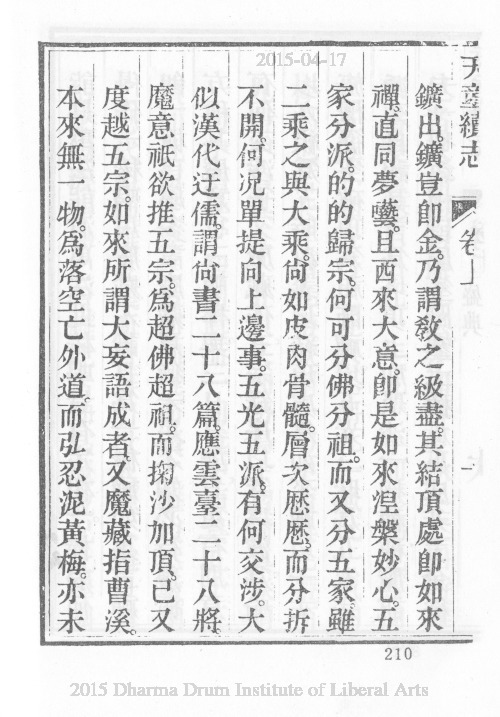 2015-04-17
天童續志 卷上
鑛出。鑛豈卽金。乃謂敎之級盡。其結頂處卽如來
禪。直同夢囈。且西來大意。卽是如來湼槃妙心。五
家分派。的的歸宗。何可分佛分祖。而又分五家。雖
二乘之與大乘。尙如皮肉骨髓。層次歴歴。而分拆
不開。何况單提向上邊事。五光五派。有何交涉。大
似漢代迂儒。謂尙書二十八篇。應雲臺二十八將。
魔意祇欲推五宗。爲超佛超祖。而掬沙加頂。已又
度越五宗。如來所謂大妄語成者。又魔藏指曹溪。
本來無一物。爲落空亡外道。而弘忍泥黃梅。亦未
210
2015 Dharma Drum Institute of Liberal Arts